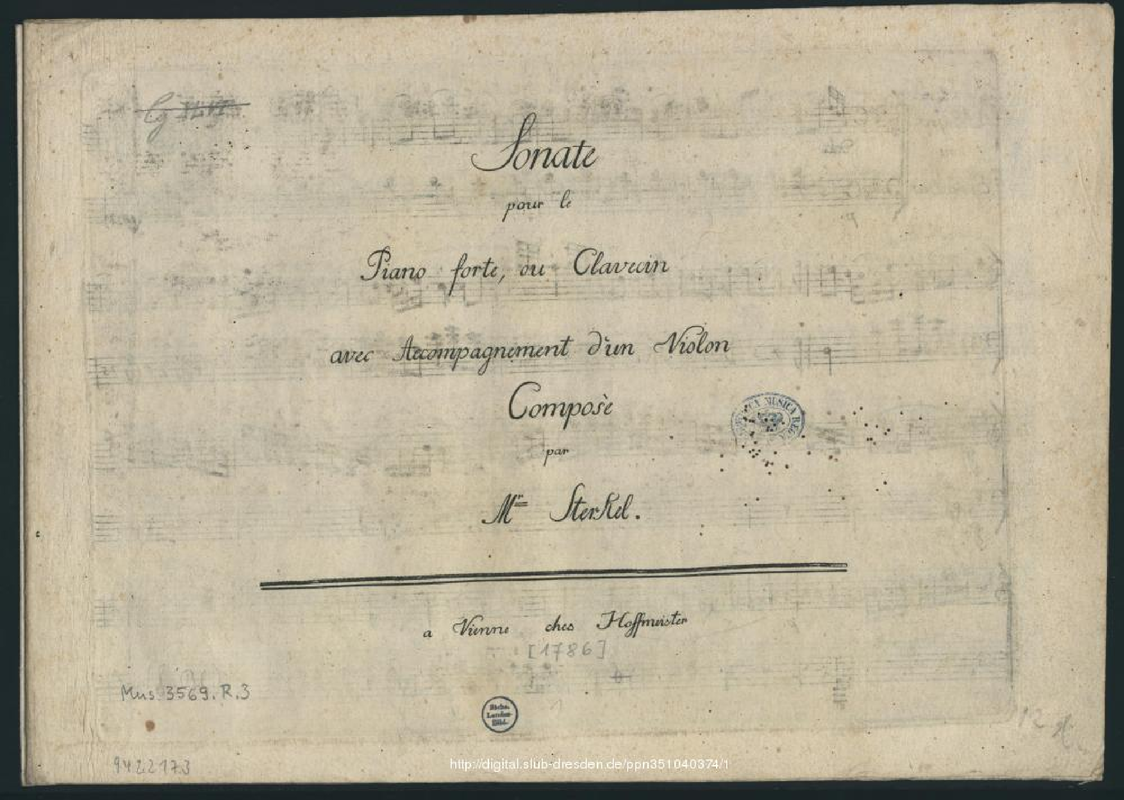 Sonate
pour le
Piano forte, ou Clavecin
avec Accompagnement d'un Violon
Composè
par
Mr Sterkel.
a Vienne ches Hoffmeister
[1786]
Mus. 3569. R. 3
Sächs.
Landes-
Bibl.
9422173
http://digital.slub-dresden.de/ppn351040374/1